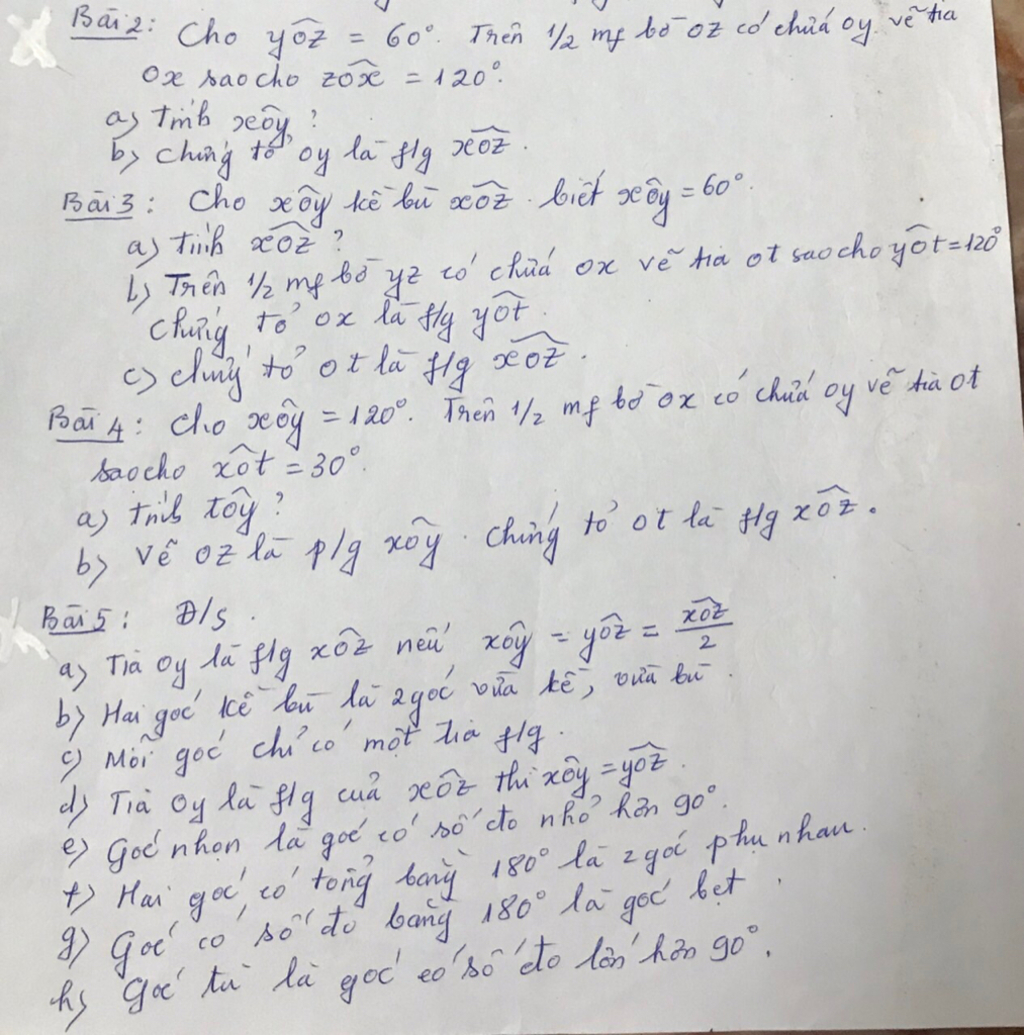 Bài 2: Cho yôz = 60°. Trên 1/2 mf bờ oz có chứa oy vẽ tia
ox sao cho zôx = 120°.
a) Tính xôy?
b) Chứng tỏ oy là f/g xôz.
Bài 3: Cho xôy kề bù xôz. biết xôy = 60°.
a) Tính xôz?
b) Trên 1/2 mf bờ yz có chứa ox vẽ tia ot sao cho yôt = 120°
Chứng tỏ ox là f/g yôt.
c) chứng tỏ ot là f/g xôz.
Bài 4: Cho xôy = 120°. Trên 1/2 mf bờ ox có chứa oy vẽ tia ot
sao cho xôt = 30°.
a) Tính tôy?
b) Vẽ oz là p/g xôy. Chứng tỏ ot là f/g xôz.
Bài 5: Đ/S.
a) Tia oy là f/g xôz nếu xôy = yôz = xôz/2
b) Hai góc kề bù là 2 góc vừa kề, vừa bù.
c) Mỗi góc chỉ có một tia f/g.
d) Tia oy là f/g của xôz thì xôy = yôz.
e) Góc nhọn là góc có số đo nhỏ hơn 90°.
f) Hai góc có tổng bằng 180° là 2 góc phụ nhau.
g) Góc có số đo bằng 180° là góc bẹt.
h) Góc tù là góc có số đo lớn hơn 90°.